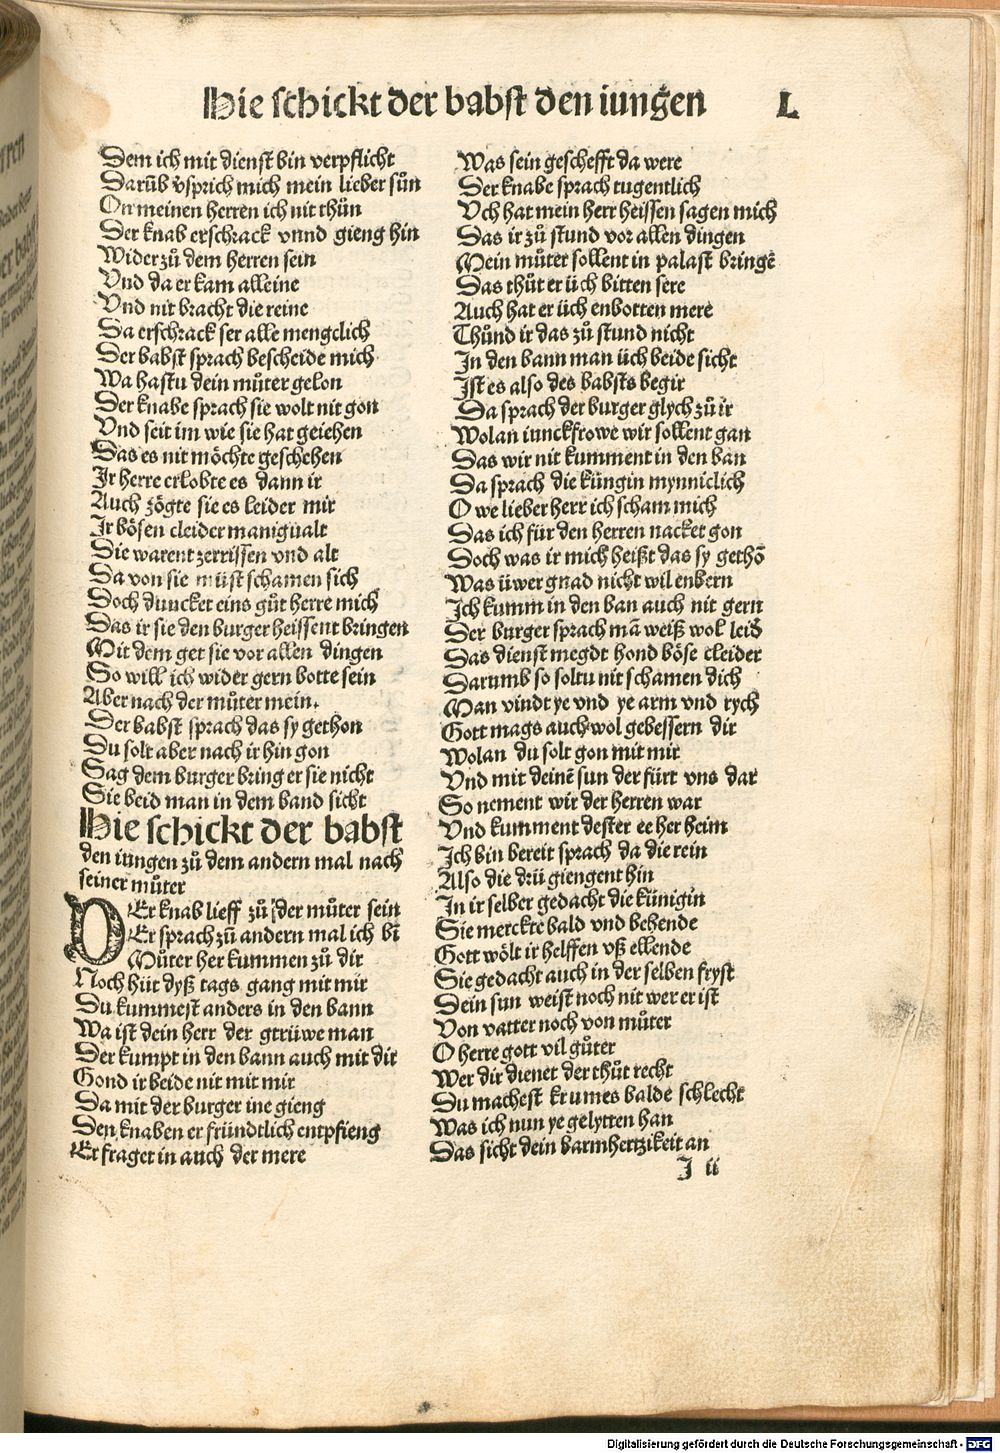 Hie schickt der babst den iungen L
Dem ich mit dienst bin verpflicht
Darūb v̈sprich mich mein lieber sůn
On meinen herren ich nit thůn
Der knab erschrack vnnd gieng hin
Wider zů dem herren sein
Vnd da er kam alleine
Vnd nit bracht die reine
Da erschrack ser alle mengclich
Der babst sprach bescheide mich
Wa hastu dein můter gelon
Der knabe sprach sie wolt nit gon
Vnd seit im wie sie hat geiehen
Das es nit möchte geschehen
Ir herre erlobte es dann ir
Auch zögte sie es leider mir
Ir bösen cleider manigualt
Die warent zerrissen vnd alt
Da von sie müst schamen sich
Doch duncket eins gůt herre mich
Das ir sie den burger heissent bringen
Mit dem get sie vor allen dingen
So will ich wider gern botte sein
Aber nach der můter mein.
Der babst sprach das sy gethon
Du solt aber nach ir hin gon
Sag dem burger bring er sie nicht
Sie beid man in dem band sicht
Hie schickt der babst
den iungen zů dem andern mal nach
seiner můter
DEr knab lieff zů der můter sein
Er sprach zů andern mal ich bī
Můter her kummen zů dir
Noch hüt dyß tags gang mit mir
Du kummest anders in den bann
Wa ist dein herr der gtrüwe man
Der kumpt in den bann auch mit dir
Gond ir beide nit mit mir
Da mit der burger ine gieng
Den knaben er fründtlich entpfieng
Er fraget in auch der mere
Was sein geschefft da were
Der knabe sprach tugentlich
Vch hat mein herr heissen sagen mich
Das ir zů stund vor allen dingen
Mein můter sollent in palast bringē
Das thůt er üch bitten sere
Auch hat er üch enbotten mere
Thůnd ir das zů stund nicht
In den bann man üch beide sicht
Ist es also des babsts begir
Da sprach der burger glych zů ir
Wolan iunckfrowe wir sollent gan
Das wir nit kumment in den ban
Da sprach die küngin mynniclich
O we lieber herr ich scham mich
Das ich für den herren nacket gon
Doch was ir mich heißt das sy gethō
Was üwer gnad nicht wil enbern
Ich kumm in den ban auch nit gern
Der burger sprach mā weiß wol leid
Das dienst megdt hond böse cleider
Darumb so soltu nit schamen dich
Man vindt ye vnd ye arm vnd rych
Gott mags auch wol gebessern dir
Wolan du solt gon mit mir
Vnd mit deinē sun der fürt vns dar
So nement wir der herren war
Vnd kumment dester ee her heim
Ich bin bereit sprach da die rein
Also die drü giengent hin
In ir selber gedacht die künigin
Sie merckte bald vnd behende
Gott wölt ir helffen vß ellende
Sie gedacht auch in der selben fryst
Dein sun weist noch nit wer er ist
Von vatter noch von můter
O herre gott vil gůter
Wer dir dienet der thůt recht
Du machest krumes balde schlecht
Was ich nun ye gelytten han
Das sicht dein barmhertzikeit an
I ii
Digitalisierung gefördert durch die Deutsche Forschungsgemeinschaft - DFG